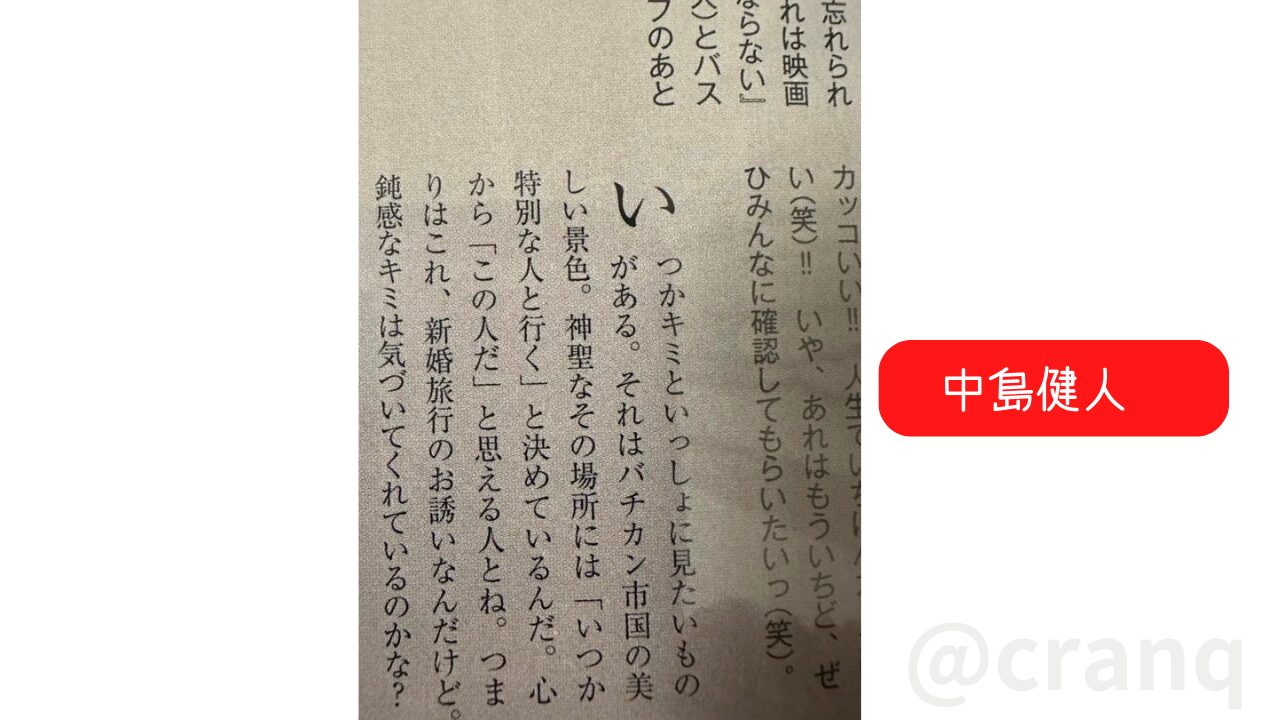 忘れられ
れは映画
ならない』
とバス
フのあと
カッコいい!! 人生でいち
い(笑)!! いや、あれはもういちど、ぜ
ひみんなに確認してもらいたいっ(笑)。
いつかキミといっしょに見たいもの
がある。それはバチカン市国の美
しい景色。神聖なその場所には「いつか
特別な人と行く」と決めているんだ。心
から「この人だ」と思える人とね。つま
りはこれ、新婚旅行のお誘いなんだけど。
鈍感なキミは気づいてくれているのかな?
中島健人
@cranq